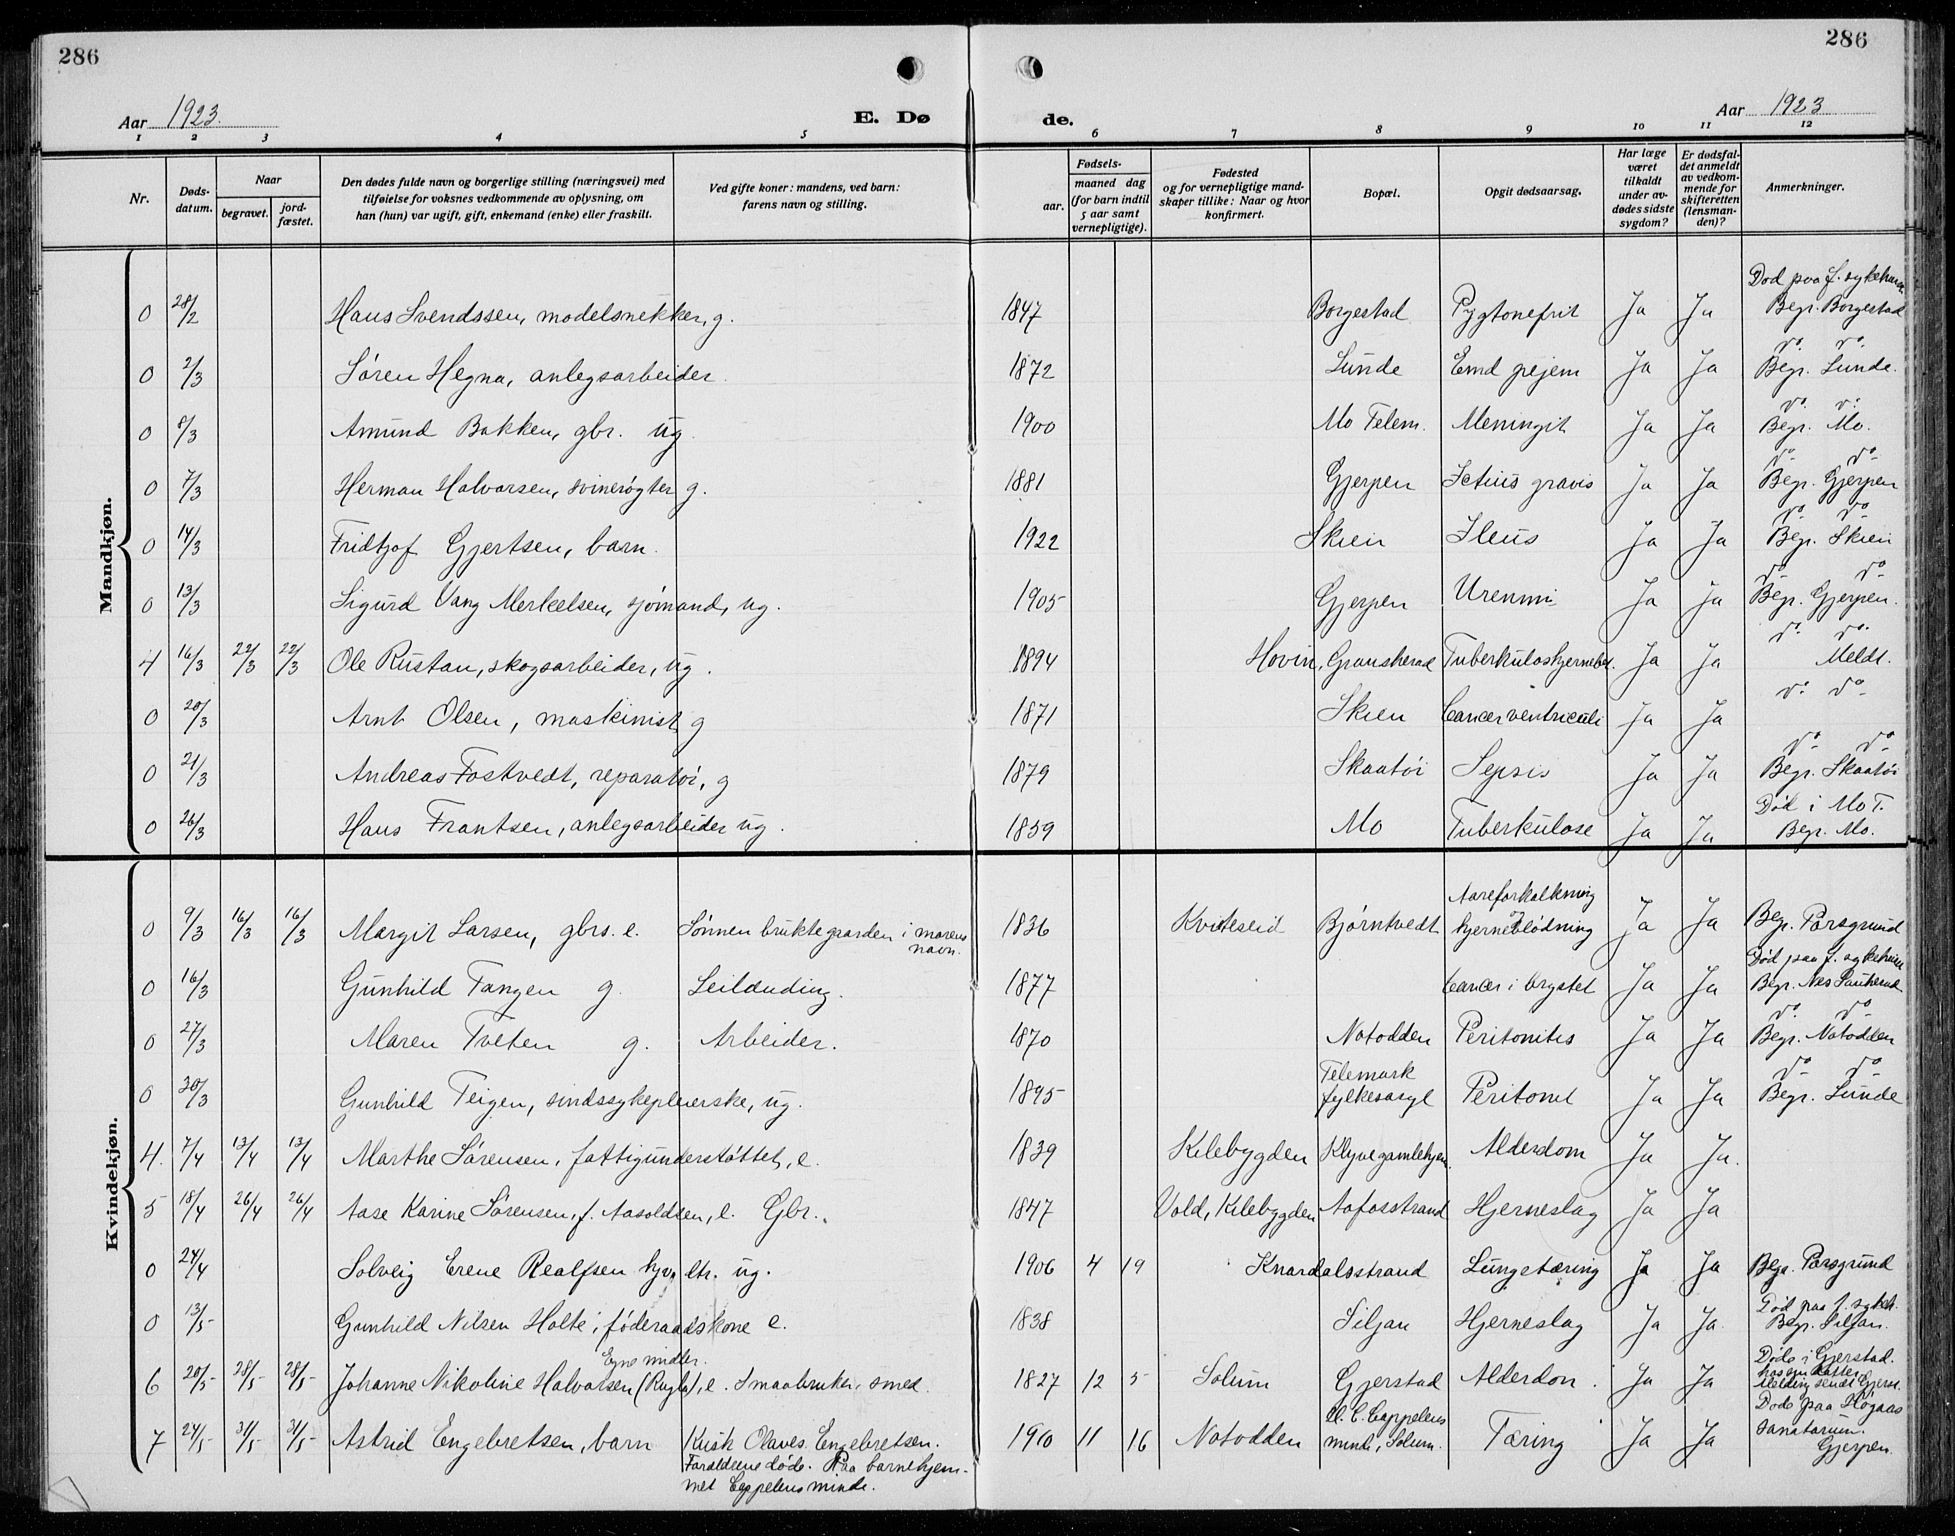 286
286
Aar 1923.
E. Dø
de.
Aar 1923
1 2 3 4 5 6 7 8 9 10 11 12
Nr.
Døds-
datum.
Naar
begravet.
jord-
fæstet.
Den dødes fulde navn og borgerlige stilling (næringsvei) med
tilføielse for voksnes vedkommende av oplysning, om
han (hun) var ugift, gift, enkemand (enke) eller fraskilt.
Ved gifte koner: mandens, ved barn:
farens navn og stilling.
Fødsels-
aar.
maaned dag
(for barn indtil
5 aar samt
vernepligtige).
Fødested
og for vernepligtige mand-
skaper tillike: Naar og hvor
konfirmert.
Bopæl.
Opgit dødsaarsag.
Har læge
været
tilkaldt
under av-
dødes sidste
sygdom?
Er dødsfal-
det anmeldt
av vedkom-
mende for
skifteretten
(lensman-
den)?
Anmerkninger.
Mandkjøn.
Død paa f. sykehuset
0 28/2 Hans Svendssen, modelsnekker, g. 1847 Borgestad Ja Ja Begr. Borgestad
do do
0 2/3 Søren Hegna, anlegsarbeider. 1872 Lunde Ja Ja Begr. Lunde.
do do
0 8/3 Amund Bakken, gbr. ug. 1900 Mo Telem. Meningit Ja Ja Begr. Mo.
do do
0 7/3 Herman Halvorsen, svinerøgter g. 1881 Gjerpen Ictius gravis Ja Ja Begr. Gjerpen
do do
0 14/3 Fridtjof Gjertsen, barn. 1922 Skien Ileus Ja Ja Begr. Skien
do do
0 13/3 Sigurd Vang Merkelsen, sjømand, ug. 1905 Gjerpen Uremmi Ja Ja Begr. Gjerpen.
do do
4 16/3 22/3 22/3 Ole Rustan, skogsarbeider, ug. 1894 Hovin, Gransherad Ja Ja Meldt.
do do
0 20/3 Arnt Olsen, maskinist g 1871 Skien Cancer ventriculi Ja Ja
do do
0 21/3 Andreas Fostvedt, reparatør, g 1879 Skaatøi Sepsis Ja Ja Begr. Skaatøi
Død i Mo T.
0 26/3 Hans Frantsen, anlegsarbeider ug. 1859 Mo Tuberkulose Ja Ja Begr. Mo.
Kvindekjøn.
Aareforkalkning
0 9/3 16/3 16/3 Margit Larsen, gbrs. e. Sønnen brukte gaarden i morens 1836 Kviteseid Bjørntvedt hjerneblødning Ja Ja Begr. Porsgrund
navn.
Død paa f. sykehuset
0 16/3 Gunhild Tangen g. Leilænding. 1877 Cancer i brystet Ja Ja Begr. Nes Sauherad
do do
0 27/3 Maren Tveten g. Arbeider. 1870 Notodden Peritonitis Ja Ja Begr. Notodden
Telemark do do
0 30/3 Gunhild Teigen, sindssykepleierske, ug. 1895 fylkesasyl Peritonit Ja Ja Begr. Lunde
4. 7/4 13/4 13/4 Marthe Sørensen, fattigunderstøttet, e. 1839 Kilebygden Klyvegamlehjem. Alderdom Ja Ja.
5 18/4 26/4 26/4 Aase Karine Sørensen, f. Aasoldsen, e. Gbr. 1847 Vold, Kilebygden Aafosstrand Hjerneslag Ja Ja
0 24/4 Solveig Erene Realfsen ug. 1906 4 19 Knardalsstrand Lungetæring Ja Ja Begr. Porsgrund
Død paa f. sykeh.
0 13/5 Gunhild Nilsen Holte, føderaadskone e. 1838 Siljan Hjerneslag Ja Ja Begr. Siljan.
Egne midler.
Døde i Gjerstad.
hos sin datter.
6 20/5 28/5 28/5 Johanne Nikoline Halvorsen (Rugla), e. Smaabruker, smed. 1827 12 5 Solum Gjerstad Alderdom. Ja Ja Melding sendt Gjerst.
C. Cappelens Døde paa Høgaas
7 24/5 31/5 31/5 Astrid Engebretsen, barn Kusk Olaves Engebretsen. 1910 11 16 Notodden minde, Solum. Tæring Ja Ja sanatorium.
Forældrene døde. Paa barnehjem- Gjerpen.
met Cappelens minde.